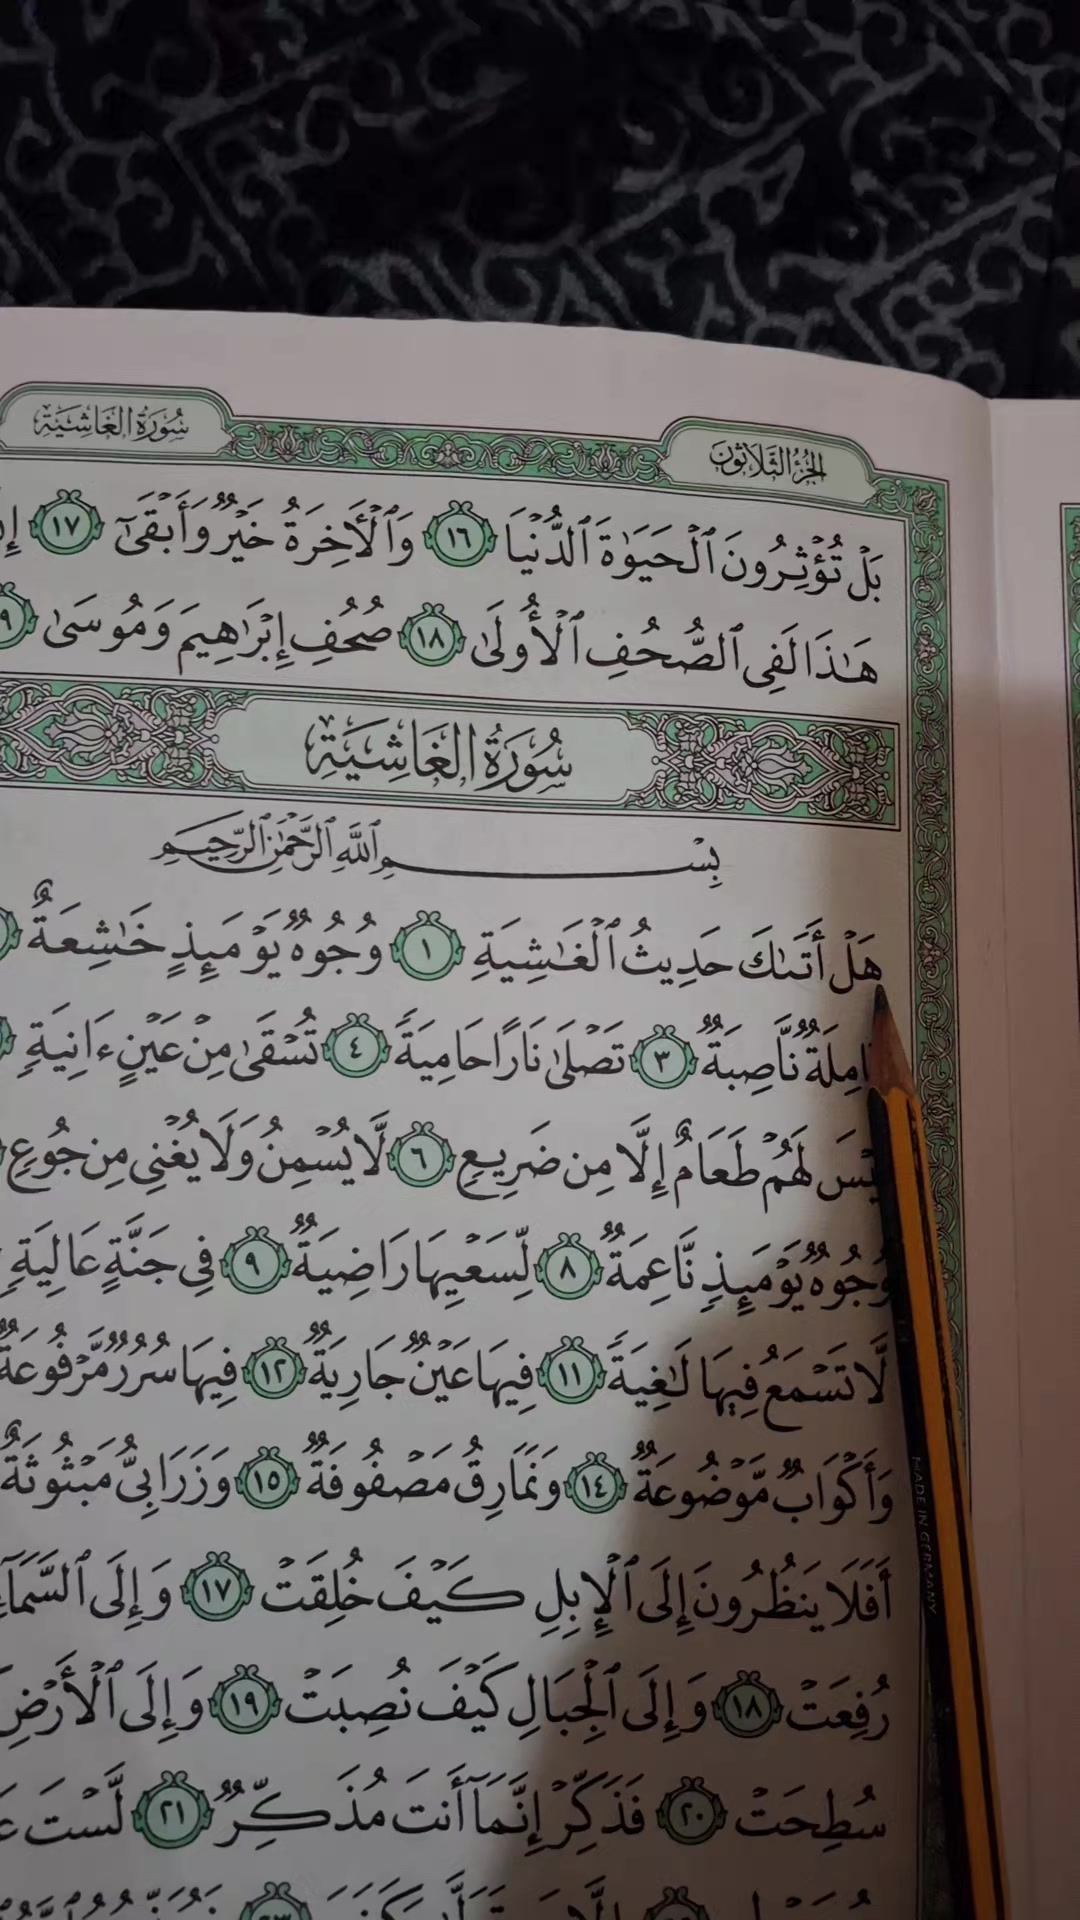 سُورَةُ الغَاشِيَةِ
الجُزْءُ الثَّلَاثُونَ
بَلْ تُؤْثِرُونَ ٱلْحَيَوٰةَ ٱلدُّنْيَا ١٦ وَٱلْأَخِرَةُ خَيْرٌ وَأَبْقَىٰٓ ١٧
هَـٰذَا لَفِى ٱلصُّحُفِ ٱلْأُولَىٰ ١٨ صُحُفِ إِبْرَٰهِيمَ وَمُوسَىٰ
سُورَةُ الغَاشِيَةِ
بِسْمِ ٱللَّهِ ٱلرَّحْمَٰنِ ٱلرَّحِيمِ
هَلْ أَتَىٰكَ حَدِيثُ ٱلْغَـٰشِيَةِ ١ وُجُوهٌ يَوْمَئِذٍ خَـٰشِعَةٌ
نَّاصِبَةٌ ٣ تَصْلَىٰ نَارًا حَامِيَةً ٤ تُسْقَىٰ مِنْ عَيْنٍ ءَانِيَةٍ
لَهُمْ طَعَامٌ إِلَّا مِن ضَرِيعٍ ٦ لَّا يُسْمِنُ وَلَا يُغْنِى مِن جُوعٍ
وُجُوهٌ يَوْمَئِذٍ نَّاعِمَةٌ ٨ لِّسَعْيِهَا رَاضِيَةٌ ٩ فِى جَنَّةٍ عَالِيَةٍ
لَّا تَسْمَعُ فِيهَا لَـٰغِيَةً ١١ فِيهَا عَيْنٌ جَارِيَةٌ ١٢ فِيهَا سُرُرٌ مَّرْفُوعَةٌ
وَأَكْوَابٌ مَّوْضُوعَةٌ ١٤ وَنَمَارِقُ مَصْفُوفَةٌ ١٥ وَزَرَابِىُّ مَبْثُوثَةٌ
أَفَلَا يَنظُرُونَ إِلَى ٱلْإِبِلِ كَيْفَ خُلِقَتْ ١٧ وَإِلَى ٱلسَّمَآءِ
رُفِعَتْ ١٨ وَإِلَى ٱلْجِبَالِ كَيْفَ نُصِبَتْ ١٩ وَإِلَى ٱلْأَرْضِ
سُطِحَتْ ٢٠ فَذَكِّرْ إِنَّمَآ أَنتَ مُذَكِّرٌ ٢١ لَّسْتَ